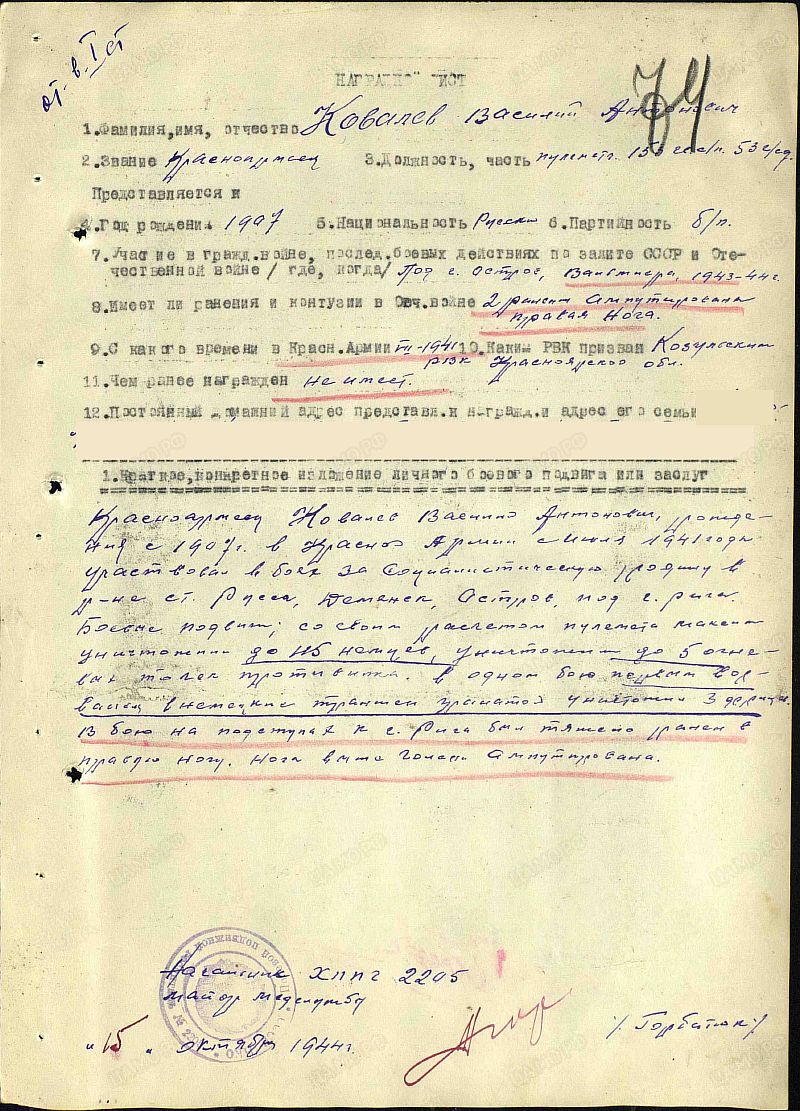 от. в. I ст
74
НАГРАДНОЙ ЛИСТ
1.Фамилия,имя, отчество Ковалев Василий Антонович
2.Звание Красноармеец 3.Должность, часть пулеметч. 153 53 с/сд.
Представляется к
4.Год рождения 1907 5.Национальность Русский 6.Партийность б/п.
7.Участие в гражд.войне, послед.боевых действиях по защите СССР и Оте-
чественной войне/ где, когда/ Под г. Остров, 1943-44г.
8.Имеет ли ранения и контузии в Отч.войне 2 ранен. Ампутирована
правая нога.
9.С какого времени в Красн.Армии VII-1941 10.Каким РВК призван Козульским
РВК Красноярской обл.
11.Чем ранее награжден не имеет.
12.Постоянный домашний адрес представл.к награжд.и адрес его семьи
1.Краткое,конкретное изложение личного боевого подвига или заслуг
Красноармеец Ковалев Василий Антонович, рожде-
ния с 1907г. в Красной Армии с Июля 1941 года
участвовал в боях за Социалистическую родину в
р-не ст. Русса, Демянск, Остров, под г. Рига.
Боевые подвиги; со своим расчетом пулемета максим
уничтожили до 115 немцев, уничтожили до 5 огне-
вых точек противника. в одном бою первым вор-
вался в немецкие траншеи гранатой уничтожил 3 фрица.
В бою на подступах к г. Рига был тяжело ранен в
правую ногу. Нога выше голени Ампутирована.
Начальник ХППГ 2295
майор медслужбы
/Горбатюк/
"15" октября 1944г.